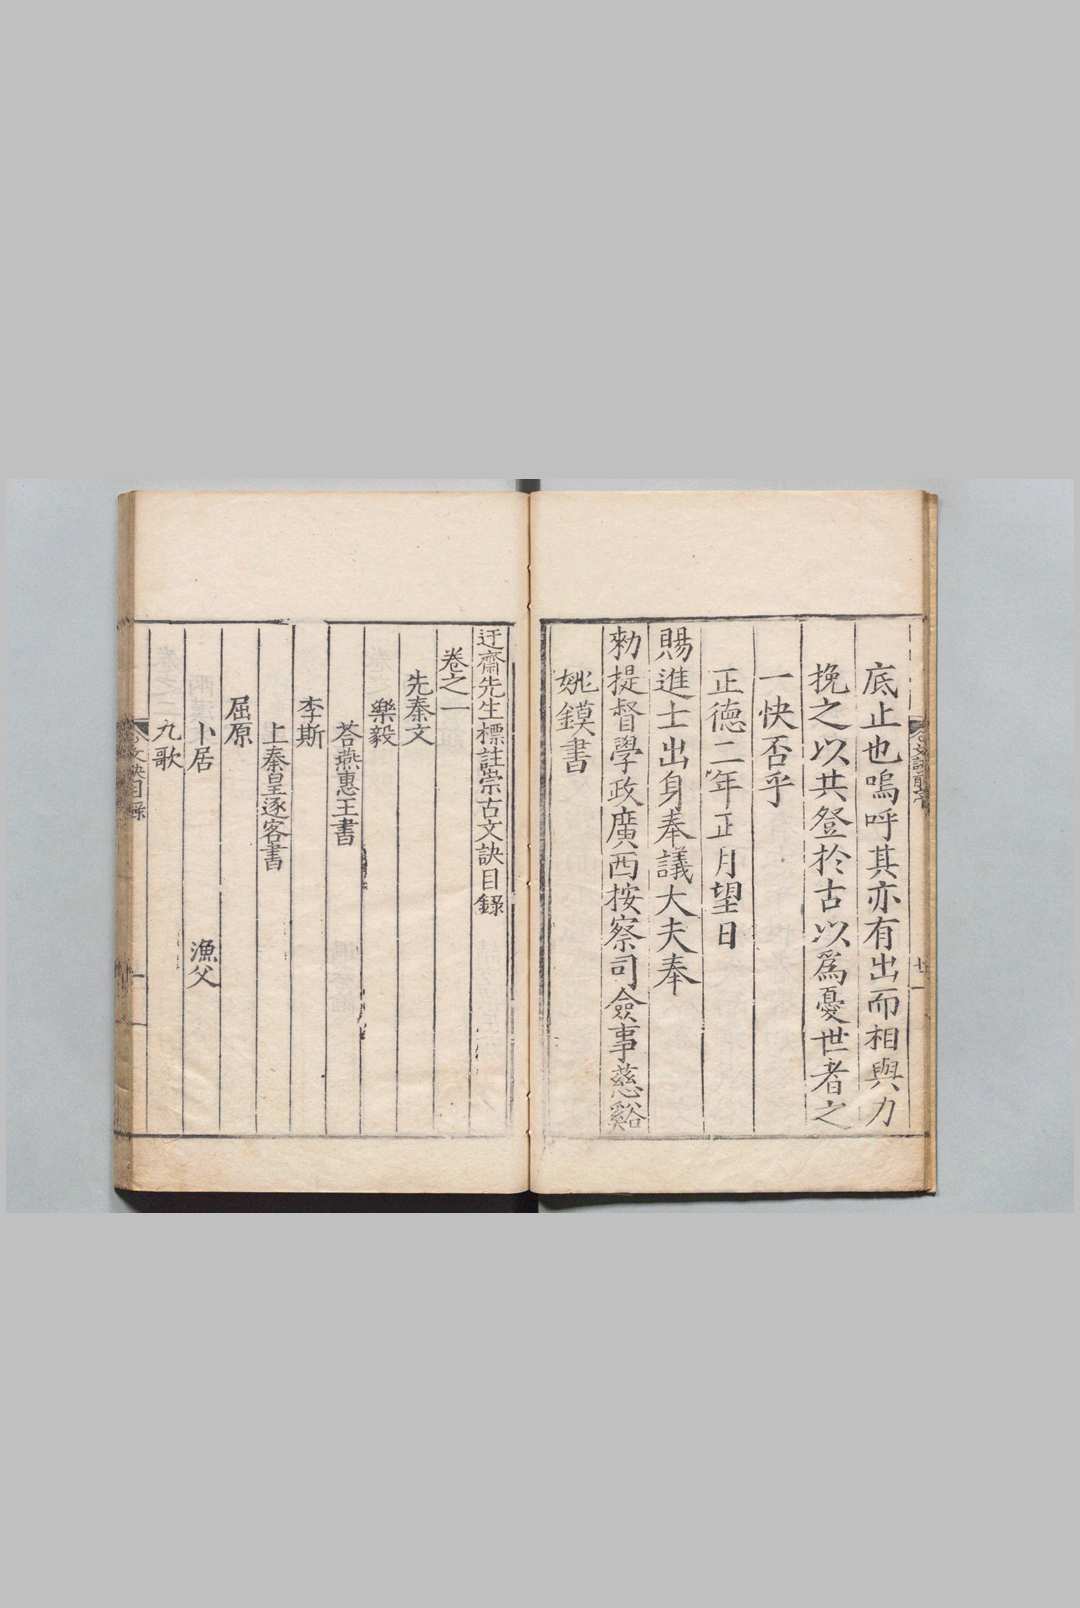 底止也嗚呼其亦有出而相與力
挽之以其登於古以爲憂世者之
一快否乎
正德二年正月望日
賜進士出身奉議大夫奉
勑提督學政廣西按察司僉事慈谿
姚鏌書
迂齋先生標註崇古文訣目錄
卷之一
先秦文
樂毅
荅燕惠王書
李斯
上秦皇逐客書
屈原
卜居 漁父
九歌
文訣目錄
一